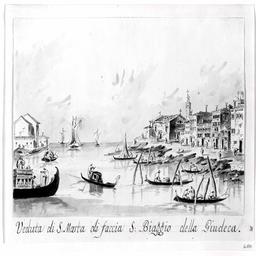 Veduta di S. Marta di faccia S. Biaggio della Giudeca.